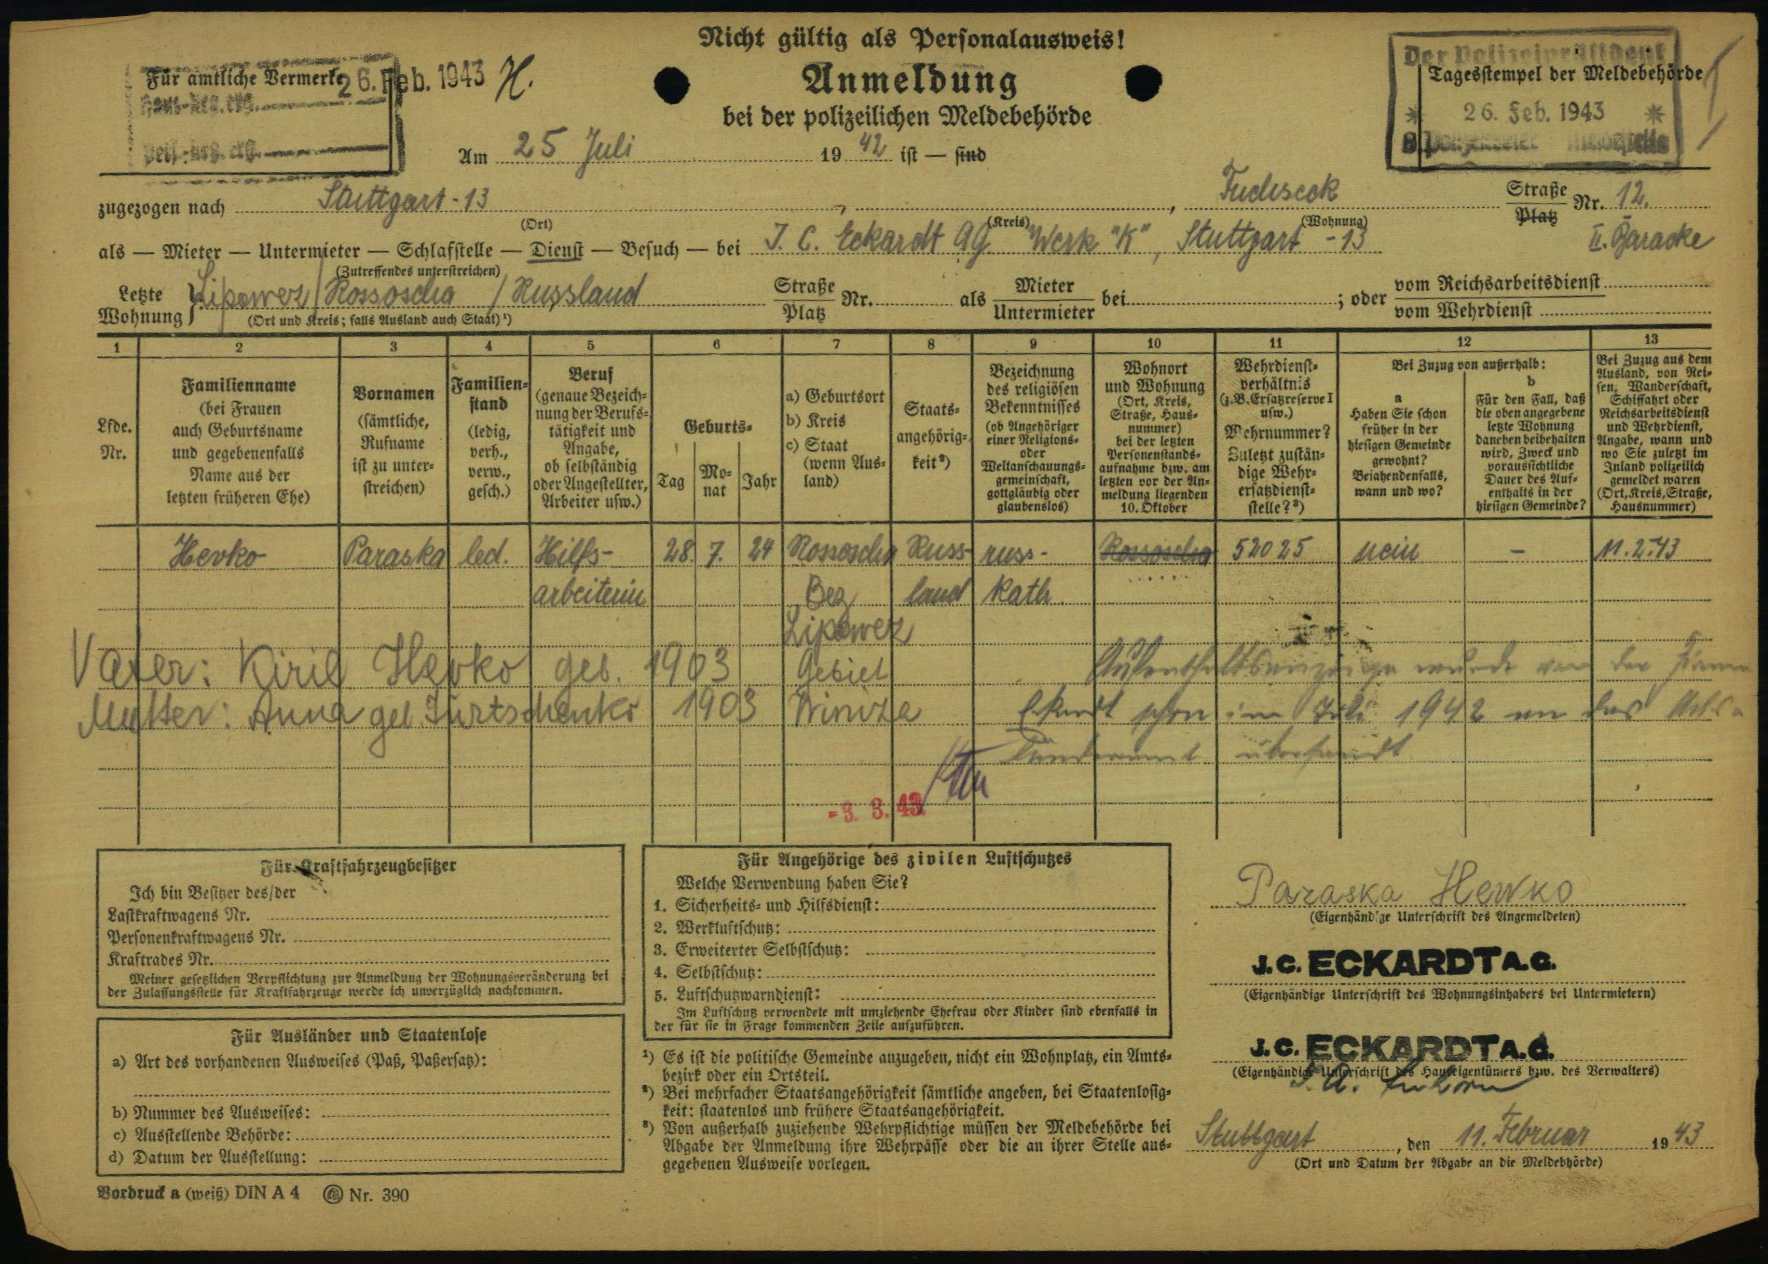 Nicht gültig als Personalausweis!
Für amtliche Vermerke
26. Feb. 1943 H.
Anmeldung
bei der polizeilichen Meldebehörde
Der Polizeipräsident
Tagesstempel der Meldebehörde
* 26. Feb. 1943 *
Am 25 Juli 1942 ist — sind
zugezogen nach Stuttgart-13, , Fuchseck Straße Platz Nr. 12.
(Ort) (Kreis) (Wohnung)
als — Mieter — Untermieter — Schlafstelle — Dienst — Besuch — bei J. C. Eckardt AG "Werk "K", Stuttgart-13 II. Baracke
(Zutreffendes unterstreichen)
Letzte Wohnung } Lipowez / Rossoscha / Russland Straße Platz Nr. als Mieter Untermieter bei ; oder vom Reichsarbeitsdienst vom Wehrdienst
(Ort und Kreis; falls Ausland auch Staat) ¹)
1 2 3 4 5 6 7 8 9 10 11 12 13
Lfde. Nr.
Familienname
(bei Frauen
auch Geburtsname
und gegebenenfalls
Name aus der
letzten früheren Ehe)
Vornamen
(sämtliche,
Rufname
ist zu unter-
streichen)
Familien-
stand
(ledig,
verh.,
verw.,
gesch.)
Beruf
(genaue Bezeich-
nung der Berufs-
tätigkeit und
Angabe,
ob selbständig
oder Angestellter,
Arbeiter usw.)
Geburts-
Tag Mo-nat Jahr
a) Geburtsort
b) Kreis
c) Staat
(wenn Aus-
land)
Staats-
angehörig-
keit²)
Bezeichnung
des religiösen
Bekenntnisses
(ob Angehöriger
einer Religions-
oder
Weltanschauungs-
gemeinschaft,
gottgläubig oder
glaubenslos)
Wohnort
und Wohnung
(Ort, Kreis,
Straße, Haus-
nummer)
bei der letzten
Personenstands-
aufnahme bzw. am
letzten vor der An-
meldung liegenden
10. Oktober
Wehrdienst-
verhältnis
(z.B. Ersatzreserve I
usw.)
Wehrnummer?
Zuletzt zustän-
dige Wehr-
ersatzdienst-
stelle?³)
Bei Zuzug von außerhalb:
a
Haben Sie schon
früher in der
hiesigen Gemeinde
gewohnt?
Bejahendenfalls,
wann und wo?
b
Für den Fall, daß
die oben angegebene
letzte Wohnung
daneben beibehalten
wird, Zweck und
voraussichtliche
Dauer des Auf-
enthalts in der
hiesigen Gemeinde?
Bei Zuzug aus dem
Ausland, von Rei-
sen, Wanderschaft,
Schiffahrt oder
Reichsarbeitsdienst
und Wehrdienst,
Angabe, wann und
wo Sie zuletzt im
Inland polizeilich
gemeldet waren
(Ort, Kreis, Straße,
Hausnummer)
Hevko Paraska led. Hilfs- 28. 7. 24 Rossoscha Russ- russ- Rossoscha 52025 nein – 11.2.43
arbeiterin Bez land kath.
Lipowez
Vater: Kiril Hevko geb. 1903 Gebiet Aufenthaltsanzeige wurde von der Firma
Mutter: Anna geb Jurtschenko 1903 Winiza Ekardt schon im Juli 1942 an das
übersandt
- 3. 3. 43
Für Kraftfahrzeugbesitzer
Ich bin Besitzer des/der
Lastkraftwagens Nr.
Personenkraftwagens Nr.
Kraftrades Nr.
Meiner gesetzlichen Verpflichtung zur Anmeldung der Wohnungsveränderung bei
der Zulassungsstelle für Kraftfahrzeuge werde ich unverzüglich nachkommen.
Für Ausländer und Staatenlose
a) Art des vorhandenen Ausweises (Paß, Paßersatz):
b) Nummer des Ausweises:
c) Ausstellende Behörde:
d) Datum der Ausstellung:
Vordruck a (weiß) DIN A 4 Nr. 390
Für Angehörige des zivilen Luftschutzes
Welche Verwendung haben Sie?
1. Sicherheits- und Hilfsdienst:
2. Werkluftschutz:
3. Erweiterter Selbstschutz:
4. Selbstschutz:
5. Luftschutzwarndienst:
Im Luftschutz verwendete mit umziehende Ehefrau oder Kinder sind ebenfalls in
der für sie in Frage kommenden Zeile aufzuführen.
¹) Es ist die politische Gemeinde anzugeben, nicht ein Wohnplatz, ein Amts-
bezirk oder ein Ortsteil.
²) Bei mehrfacher Staatsangehörigkeit sämtliche angeben, bei Staatenlosig-
keit: staatenlos und frühere Staatsangehörigkeit.
³) Von außerhalb zuziehende Wehrpflichtige müssen der Meldebehörde bei
Abgabe der Anmeldung ihre Wehrpässe oder die an ihrer Stelle aus-
gegebenen Ausweise vorlegen.
Paraska Hewko
(Eigenhändige Unterschrift des Angemeldeten)
J.C. ECKARDT A.G.
(Eigenhändige Unterschrift des Wohnungsinhabers bei Untermietern)
J.C. ECKARDT A.G.
(Eigenhändige Unterschrift des Hauseigentümers bzw. des Verwalters)
Stuttgart, den 11. Februar 1943
(Ort und Datum der Abgabe an die Meldebehörde)